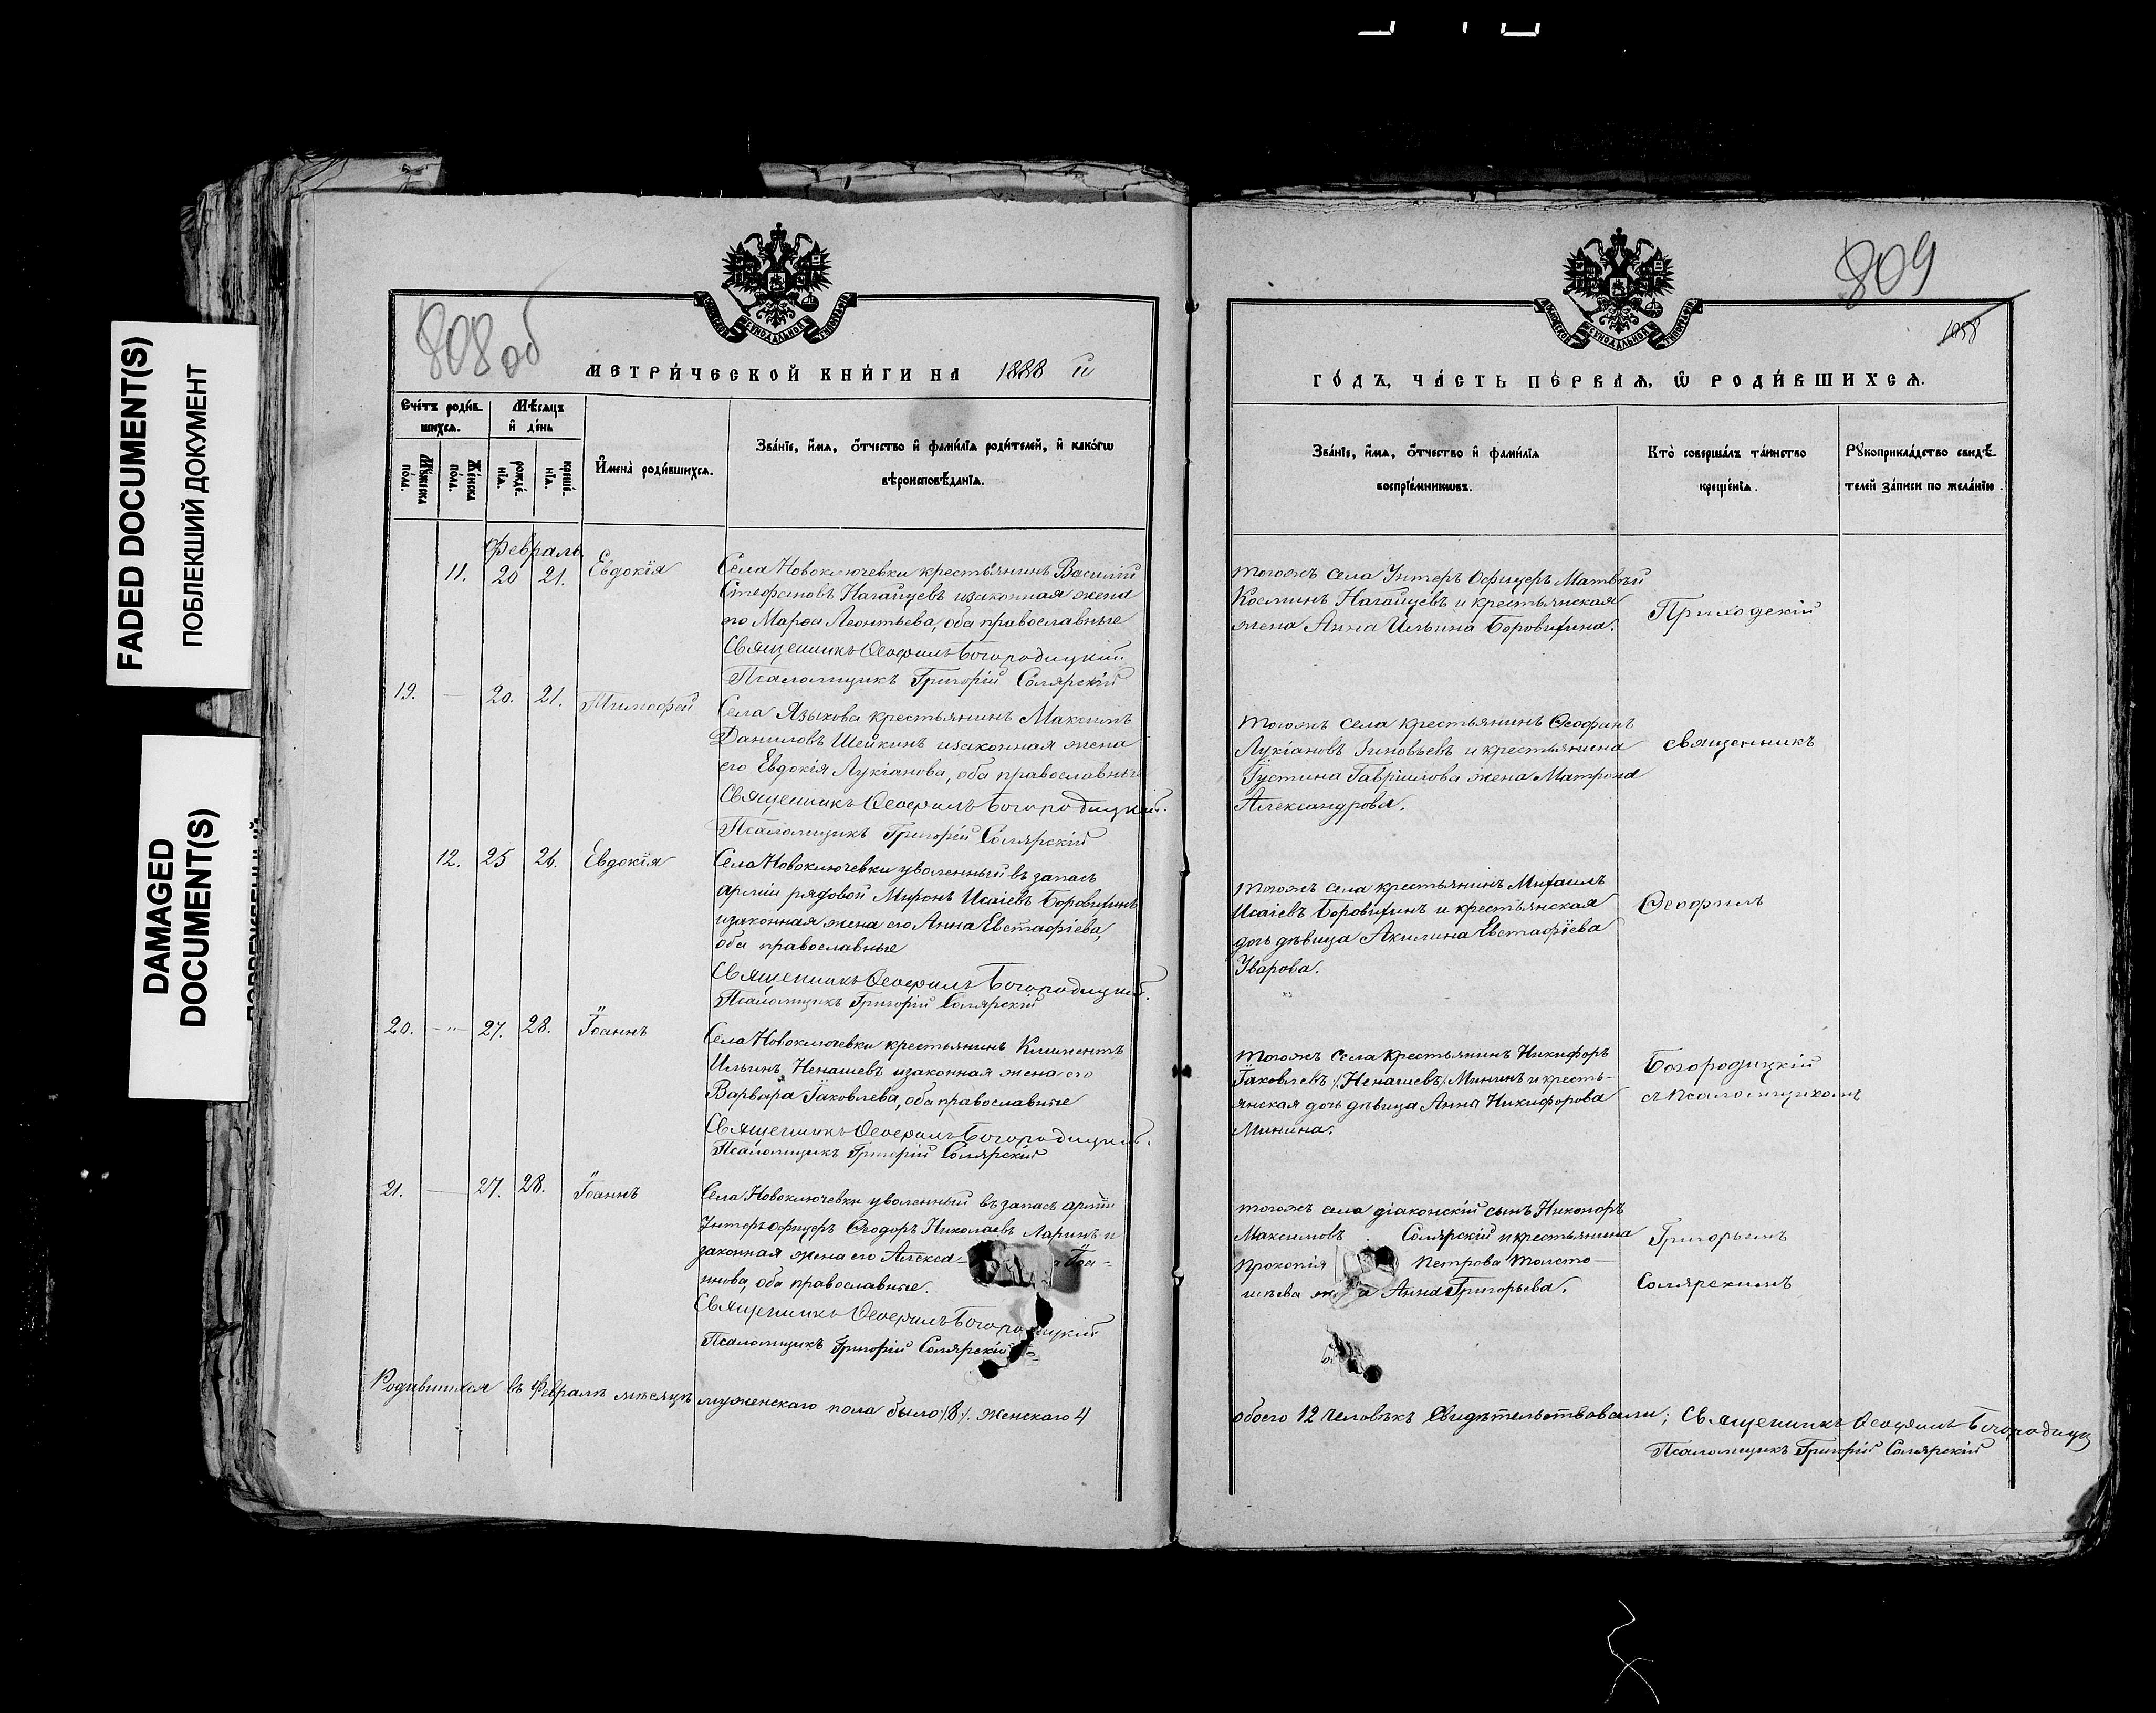 FADED DOCUMENT(S)
ПОБЛЕКШИЙ ДОКУМЕНТ
DAMAGED
DOCUMENT(S)
808 об
МЕТРИ́ЧЕСКОЙ КНИ́ГИ НА 1888 й
Сче́тъ роди́в-
шихся.
Мѣсяцъ
и де́нь
Му́жеска
по́ла.
Же́нска
по́ла.
рожде́-
нїя.
креще́-
нїя.
И҆мена̀ роди́вшихся.
Зва́нїе, и҆́мя, ѻ҆́тчество и҆ фами́лїя роди́телей, и҆ како́гѡ
вѣроисповѣ́данїя.
Февраль
11. 20 21. Евдокія
Села Новоключевки крестьянинъ Василій
Стефановъ Нагайцевъ изаконная жена
его Марѳа Леонтьева, оба православные
Священникъ Ѳеофилъ Богородицкій.
Псаломщикъ Григорій Солярскій
19. — 20. 21. Тимоѳей
Села Языкова крестьянинъ Максимъ
Даниловъ Шейкинъ изаконная жена
его Евдокія Лукіанова, оба православные
Священникъ Ѳеофилъ Богородицкій.
Псаломщикъ Григорій Солярскій
12. 25 26. Евдокія
Села Новоключевки уволенный въ запасъ
арміи рядовой Миронъ Исаіевъ Боровихинъ
изаконная жена его Анна Евстафіева,
оба православные
Священникъ Ѳеофилъ Богородицкій.
Псаломщикъ Григорій Солярскій
20. —"— 27. 28. Іоаннъ
Села Новоключевки крестьянинъ Климентъ
Ильинъ Ненашевъ изаконная жена его
Варвара Іаковлева, оба православные
Священникъ Ѳеофилъ Богородицкій.
Псаломщикъ Григорій Солярскій
21. — 27. 28. Іоаннъ
Села Новоключевки уволенный въ запасъ арміи
Унтеръ офицеръ Ѳеодоръ Николаевъ Ларинъ и
законная жена его Алекса- Іоа-
ннова, оба православные.
Священникъ Ѳеофилъ Богородицкій
Псаломщикъ Григорій Солярскій
Родившихся въ Февралѣ мѣсяцѣ мужескаго пола было /8/. женскаго 4
809
1058
ГО́ДЪ, ЧА́СТЬ ПЕ́РВАЯ, Ѡ҆ РОДИ́ВШИХСЯ.
Зва́нїе, и҆́мя, ѻ҆́тчество и҆ фами́лїя
воспрїе́мникѡвъ.
Кто̀ соверша́лъ та́инство
креще́нїя.
Рꙋкоприкла́дство свидѣ́-
телей за́писи по жела́нїю.
тогожъ села Унтеръ Офицеръ Матвѣй
Косминъ Нагайцевъ и крестьянская
жена Анна Ильина Боровихина.
Приходскій
тогожъ села крестьянинъ Ѳеофанъ
Лукіановъ Зиновьевъ и крестьянина
Іустина Гавріилова жена Матрона
Александрова.
священникъ
тогожъ села крестьянинъ Михаилъ
Исаіевъ Боровихинъ и крестьянская
дочь дѣвица Акилина Евстафіева
Уварова.
Ѳеофилъ
тогожъ села крестьянинъ Никифоръ
Іаковлевъ /Ненашевъ/ Мининъ и кресть-
янская дочь дѣвица Анна Никифорова
Минина.
Богородицкій
съ псаломщикомъ
тогожъ села діаконскій сынъ Никоноръ
Максимовъ Солярскій и крестьянина
Прокопія Петрова Толсто-
шѣева жена Анна Григорьева.
Григорьемъ
Солярскимъ
обоего 12 человѣкъ Свидѣтельствовали; Священникъ Ѳеофилъ Богородицк
Псаломщикъ Григорій Солярскій